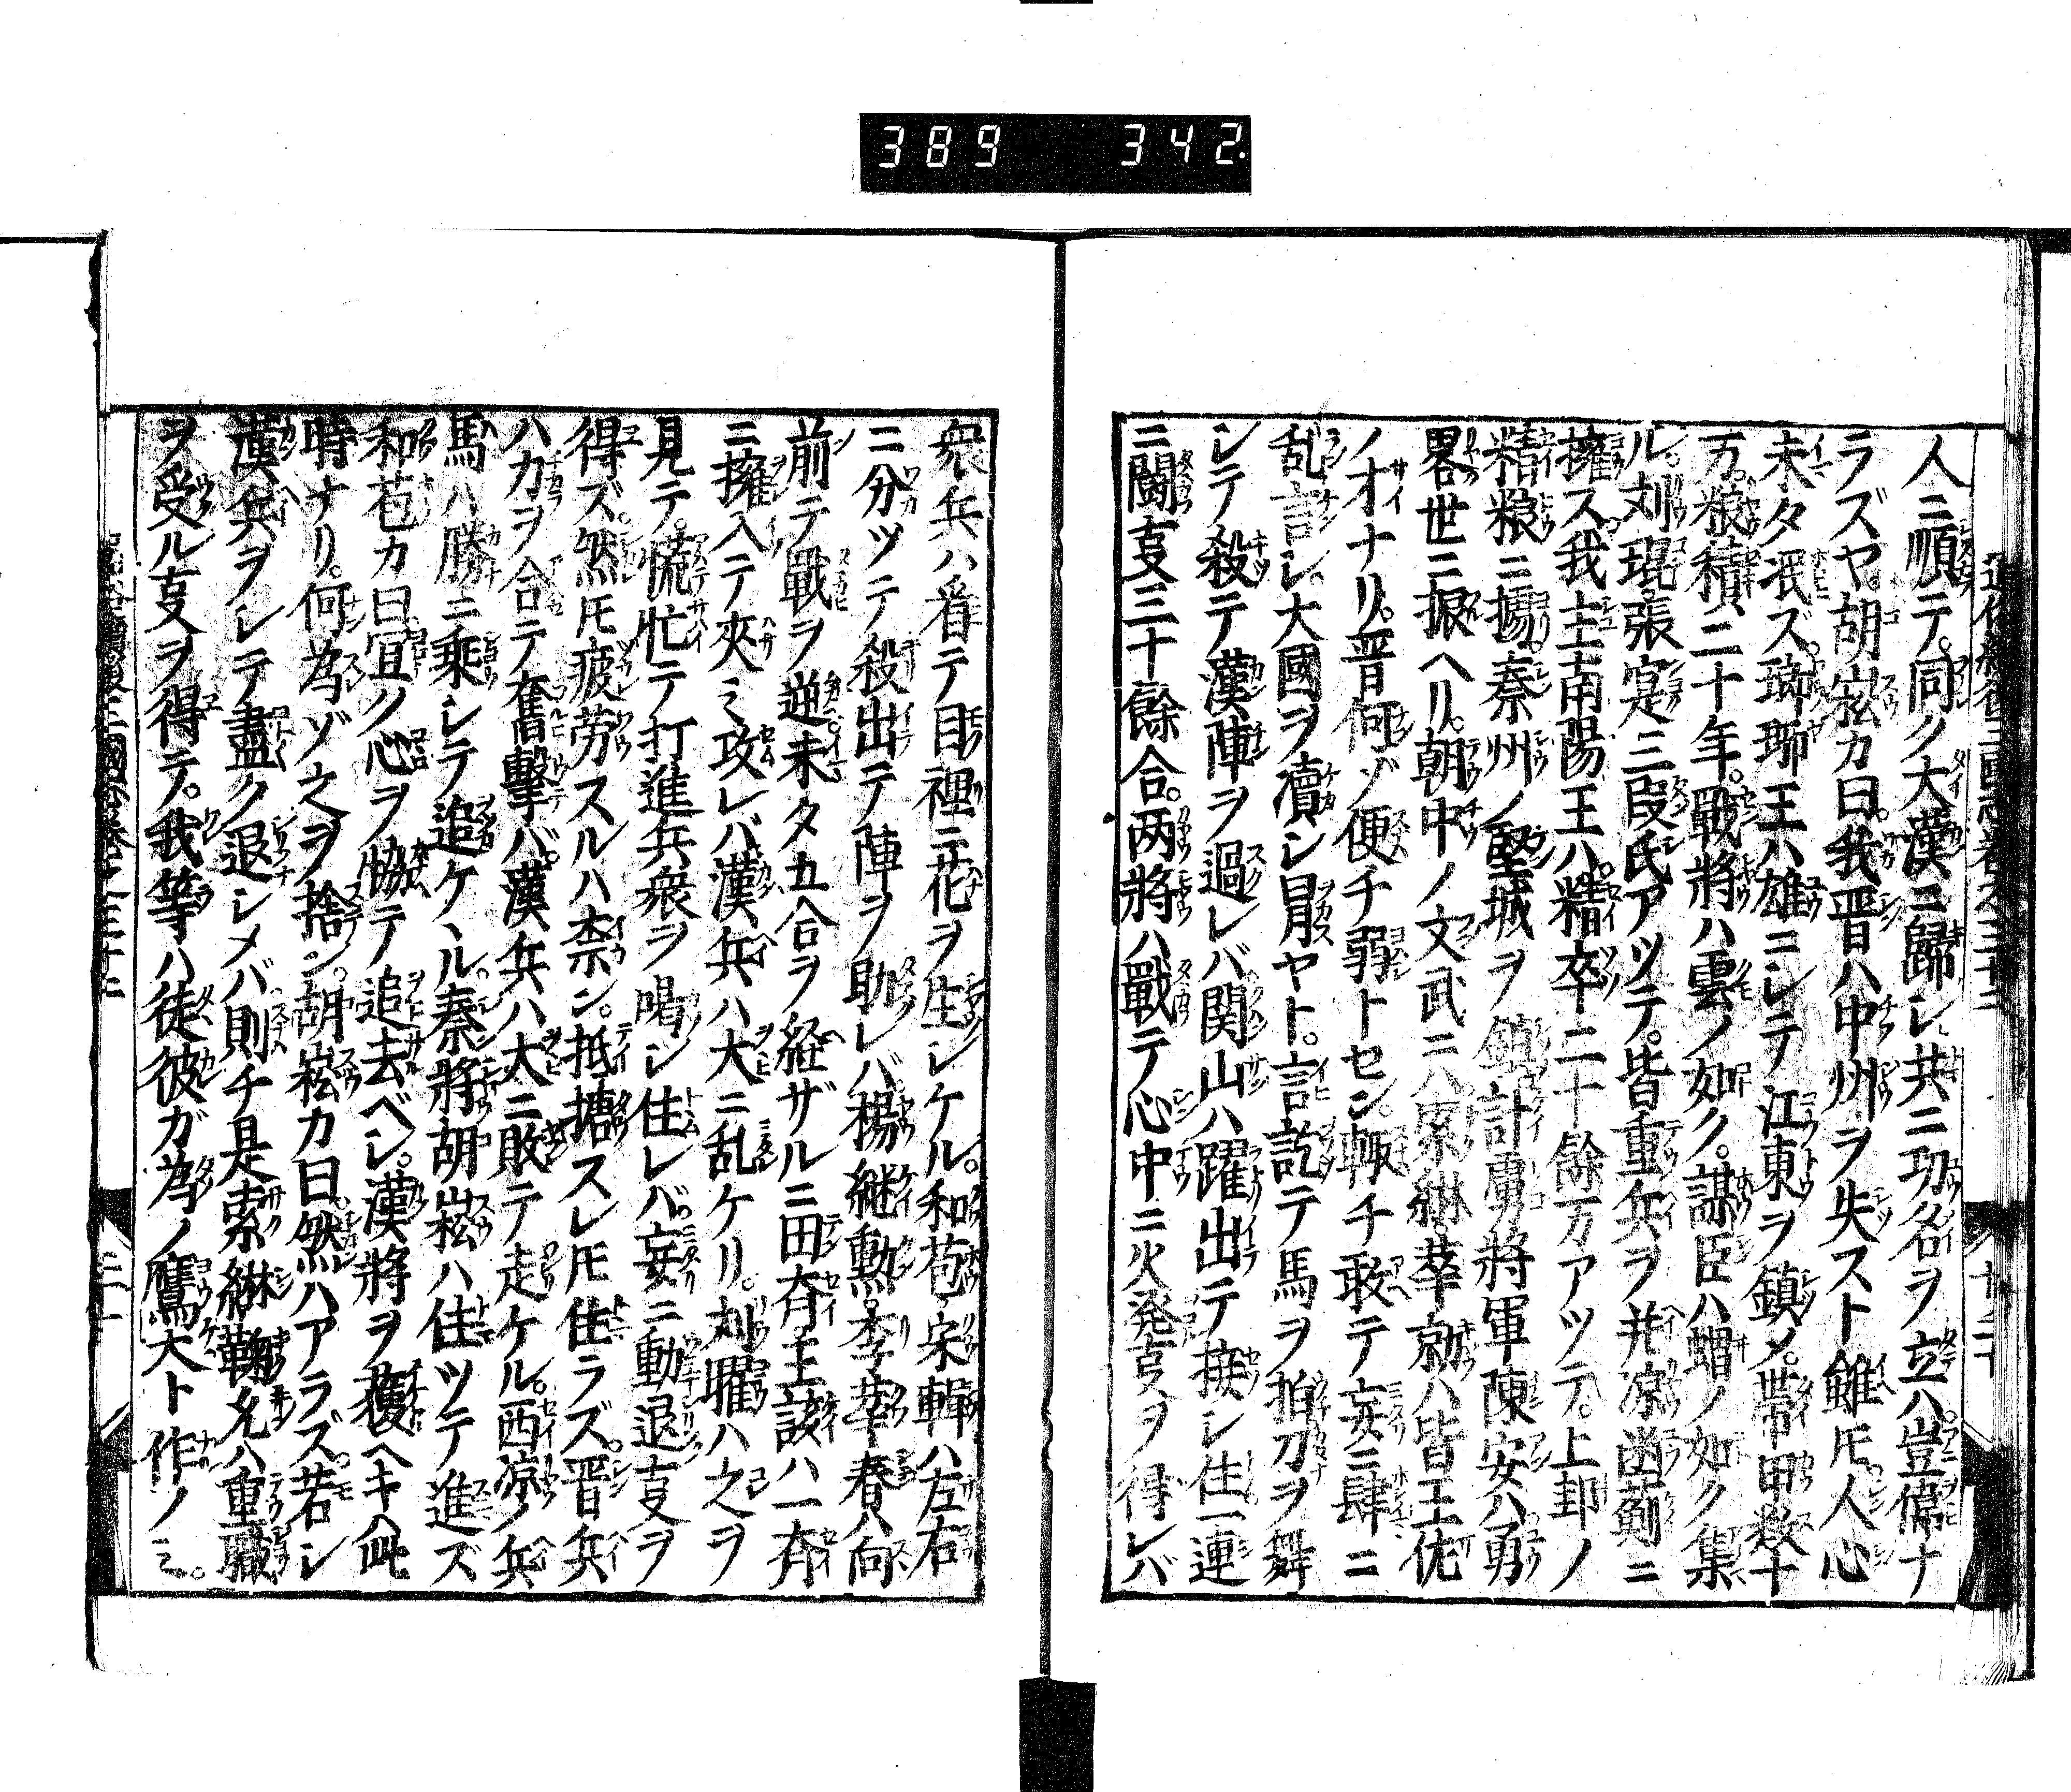 389 342
人ニ順テ。同ク大漢ニ歸シ共ニ功名ヲ立ハ。豈偉ナ
ラズヤ。胡崧カ曰。我晋ハ中州ヲ失スト雖𪜈人心
未タ泯ズ。瑯琊王ハ雄ニシテ江東ヲ鎮メ。帯甲数十
万。粮積二十年。戰將ハ雲ノ如ク。謀臣ハ蝟ノ如ク集
ル。刘琨張寔三段氏アツテ。皆重兵ヲ并凉幽薊ニ
擁ス我主南陽王ハ。精卒二十餘万アツテ。上邽ノ
精粮ニ據。秦州ノ堅城ヲ鎮計勇將軍陳安ハ勇
畧世ニ振ヘリ。朝中ノ文武ニハ索綝麹允皆王佐
ノ才ナリ。晋何ゾ便チ弱トセン。輙チ敢テ妄ニ肆ニ
乱言シ。大國ヲ瀆シ冒ヤト。言訖テ馬ヲ拍刀ヲ舞
シテ殺テ漢陣ヲ過レバ関山ハ躍出テ接シ住一連
ニ闘叓三十餘合。两將ハ戰テ心中ニ火発叓ヲ得レバ
衆兵ハ看テ目裡ニ花ヲ生シケル。和苞宋輯ハ左右
ニ分ツテ殺出テ陣ヲ助レバ。楊継勲。李華春ハ向
前テ戰ヲ逆未タ五合ヲ経ザルニ田斉王該ハ一斉
ニ擁入テ夾ミ攻レバ漢兵ハ大ニ乱ケリ。刘曜ハ之ヲ
見テ。慌忙テ打進兵衆ヲ喝シ住レバ。妄ニ動退叓ヲ
得ズ。然𪜈疲労スルハ柰ン。抵搪スレ𪜈住ラズ。晋兵
ハカヲ合テ奮擊バ。漢兵ハ大ニ敗テ走ケル。西凉ノ兵
馬ハ勝ニ乘シテ追ケヽル。秦將胡崧ハ住ツテ進ズ
和苞カ曰宜ノ心ヲ協テ追去ベシ。漢將ヲ獲ヘキハ此
時ナリ。何為ゾ之ヲ捨ン。胡崧カ曰。然ハアラズ。若シ
漢兵ヲシテ盡ク退シメバ。則チ是索綝鞠允ハ重職
ヲ受ル叓ヲ得テ。我等ハ徒彼ガ為ノ鷹犬ト作ノミ。